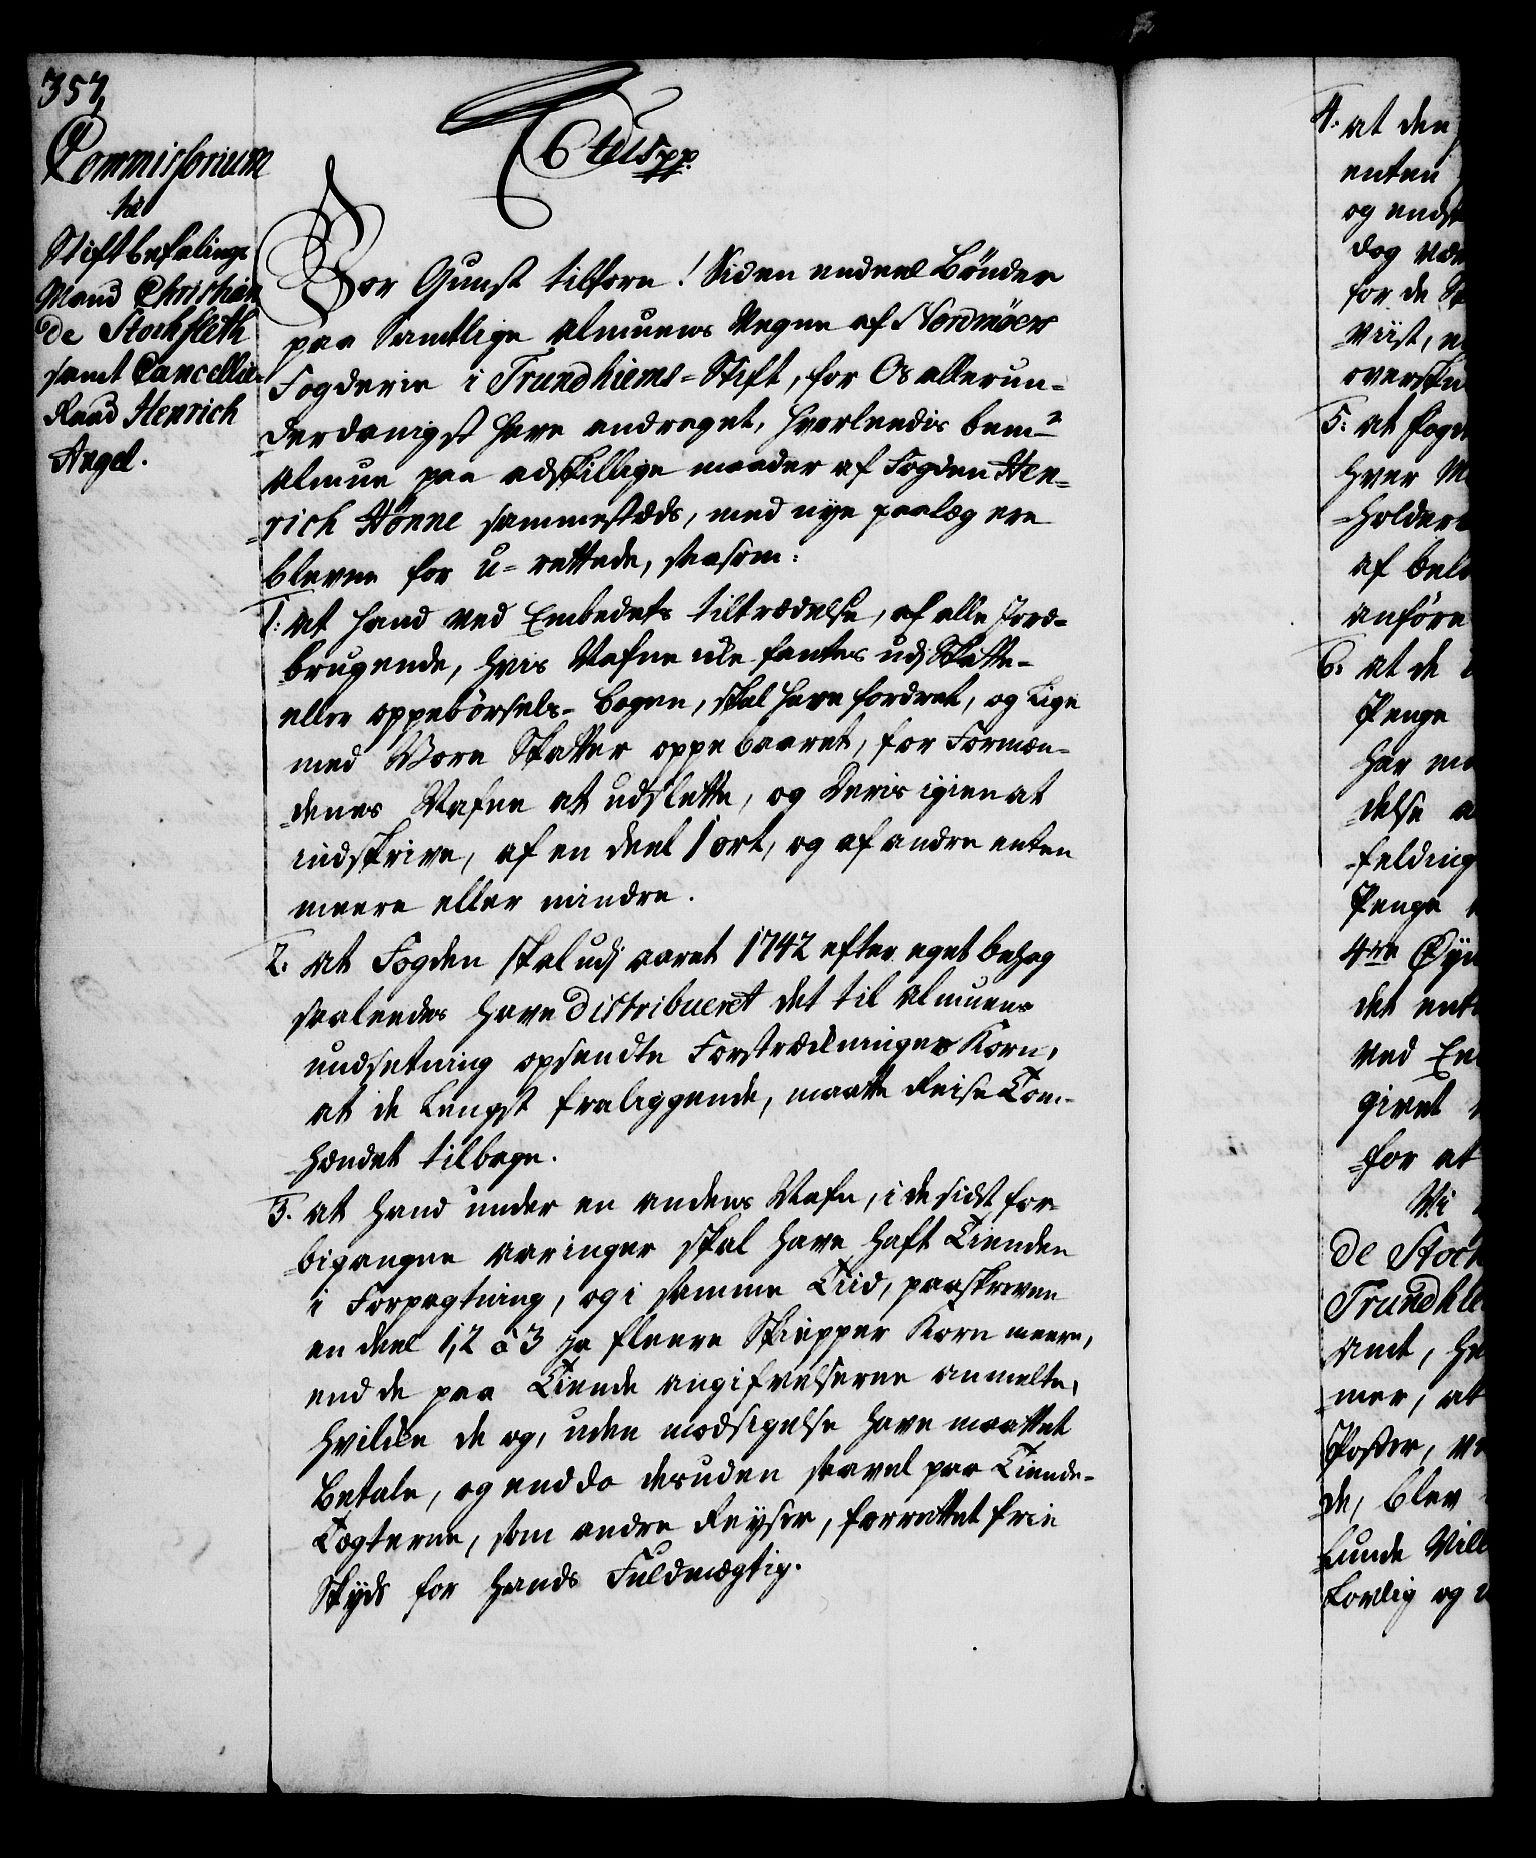 357,
Commissorium
til
Stiftbefalings
Mand Christian
de Stockfleth
samt Cancellie-
Raad Henrich
Angel.
C 6tus pp.
Vor Gunst tilforn! Siden endeel Bønder
paa samtlige Almuens Vegne af Nordmøers
Fogderie i Trundhiems-Stift, for Os allerun-
derdanigst have andraget, hvorleedis bem.te
Almue paa adskillige maader af Fogden Hen-
rich Hönne sammestæds, med nye paalæg ere
blevne for u-rettede, saasom:
1: at hand ved Embedets tiltrædelse, af alle Jord-
brugende, hvis Nafne icke fantes udj Skatte-
eller oppebörsels-bogen, skal have fordret, og lige
med Vore Skatter oppebaaret, for Formæn-
denes Nafne at udslette, og deris igien at
indskrive, af en deel 1 ort, og af andre enten
meere eller mindre.
2. at Fogden skal udj aaret 1742 efter eget behag
saaleedes have distribueret det til Almuens
undsetning opsendte Forstræckninges Korn,
at de længst fraliggende, maatte Reise Tom-
hændet tilbage.
3. at hand under en andens Nafn, i de sidst for-
bigangne aaringer skal have haft Tienden
i Forpagtning, og i samme Tiid, paaskreven
en deel 1, 2 à 3 ja fleere Skiepper Korn meere,
end de paa Tiende angifvelserne anmelte,
hvilcke de og, uden modsigelse have maattet
betale, og endda desuden saavel paa Tiende-
Togterne, som andre Reyser, forrettet frie
Skyds for hands Fuldmægtig.
4: at den
enten
og
dog
for de
viist,
5: at fogd
hver
holder
af
anföre
6: at de
Penge
har
delse
felding
Penge
4re
det
ved
givet
for at
Vi
de Stock
Trundhie
Amt,
mer, at
Poster,
de, blev
kunde
Lovlig og